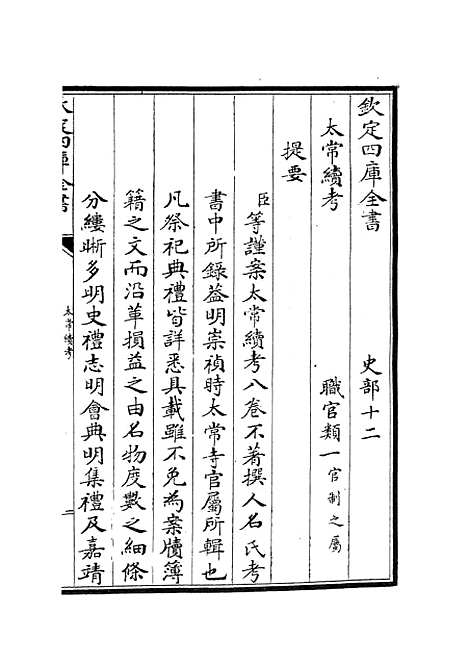 欽定四庫全書 史部十二
太常續考 職官類一官制之屬
提要
臣等謹案太常續考八卷不著撰人名氏考
書中所錄益明崇禎時太常寺官屬所輯也
凡祭祀典禮皆詳悉具載雖不免為案牘簿
籍之文而沿革損益之由名物度數之細條
分縷晰多明史禮志明會典明集禮及嘉靖
欽定四庫全書
太常續考